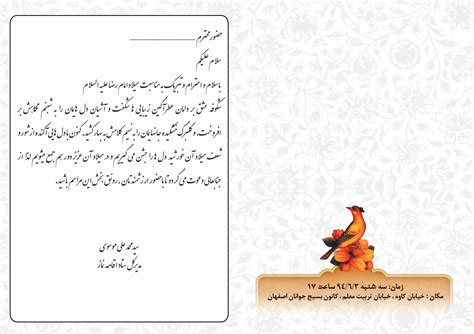 حضور محترم
سلام علیکم
با سلام و احترام و تبریک به مناسبت میلاد امام رضا علیه السلام
شکوفه عشق بر دامان عطرآگین زیبایی ها شکفت و آشیان دل هامان را به شبنم نگاهش بر
افروخت، و گلبرگ خشکیده جانهایمان را به نسیم کلامش به بهار کشید. کنون با دل هایی آکنده از شور و
شعف میلاد آن خورشید دل ها را جشن می گیریم و در میلاد آن عزیز دور هم جمع میشویم لذا از
جنابعالی دعوت می گردد تا با حضور ارزشمندتان ، رونق بخش این مراسم باشید.
سید محمد علی موسوی
مدیرکل ستاد اقامه نماز
زمان: سه شنبه ۹۴/۶/۳ ساعت ۱۷
مکان : خیابان کاوه ، خیابان تربیت معلم ، کانون بسیج جوانان اصفهان